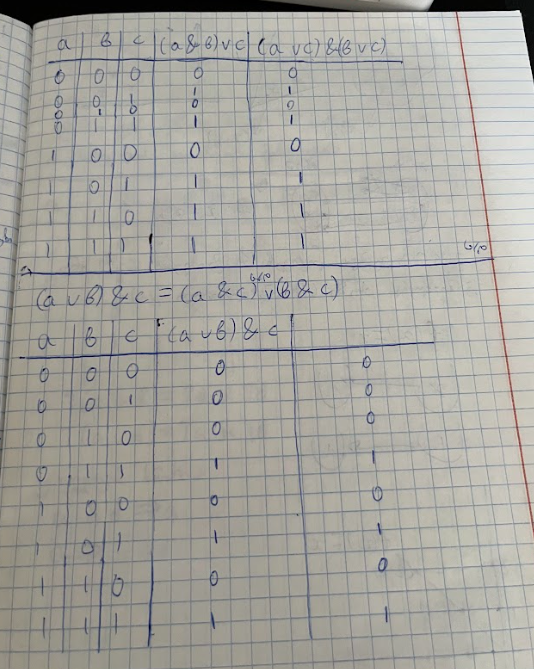 a b c (a & b) v c (a v c) & (b v c)
0 0 0 0 0
0 0 1 1 1
0 1 0 0 0
0 1 1 1 1
1 0 0 0 0
1 0 1 1 1
1 1 0 1 1
1 1 1 1 1
(a v b) & c = (a & c) v (b & c)
a b c (a v b) & c
0 0 0 0 0
0 0 1 0 0
0 1 0 0 0
0 1 1 1 1
1 0 0 0 0
1 0 1 1 1
1 1 0 0 0
1 1 1 1 1